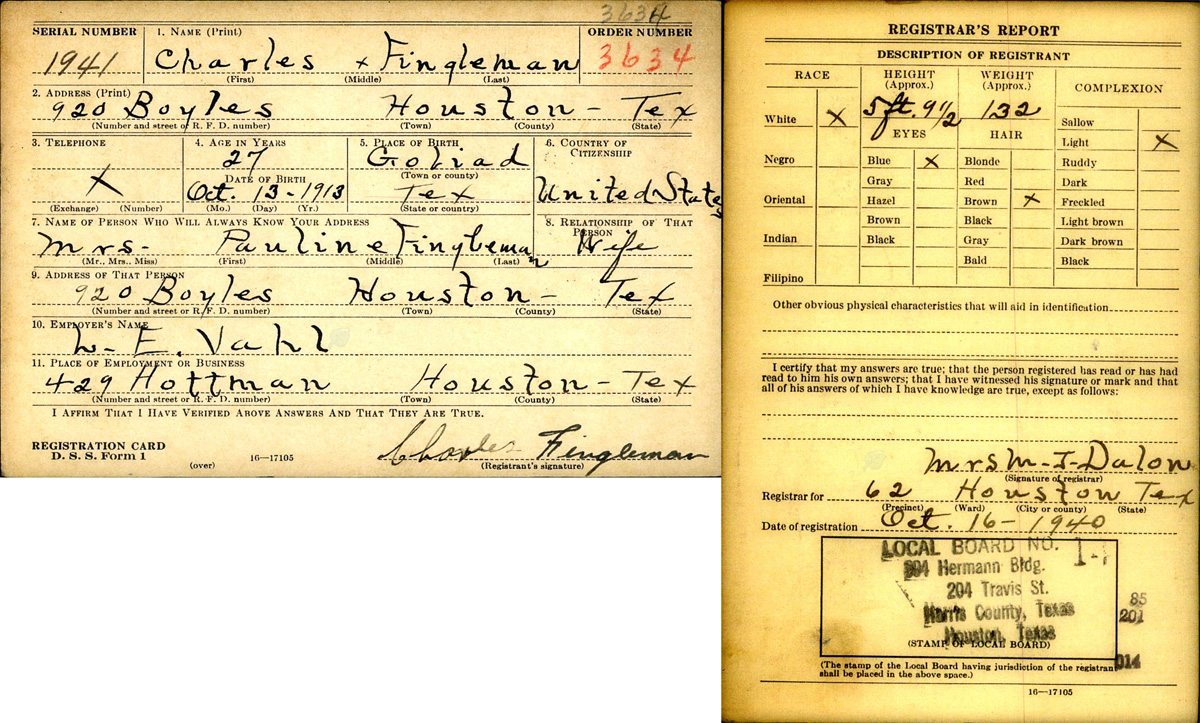 3634
SERIAL NUMBER 1. NAME (Print) ORDER NUMBER
1941 Charles x Fingleman 3634
(First) (Middle) (Last)
2. ADDRESS (Print)
920 Boyles Houston - Tex
(Number and street or R. F. D. number) (Town) (County) (State)
3. TELEPHONE 4. AGE IN YEARS 5. PLACE OF BIRTH 6. COUNTRY OF CITIZENSHIP
27 Goliad
DATE OF BIRTH (Town or county)
X Oct. 13-1913 Tex United States
(Exchange) (Number) (Mo.) (Day) (Yr.) (State or country)
7. NAME OF PERSON WHO WILL ALWAYS KNOW YOUR ADDRESS 8. RELATIONSHIP OF THAT PERSON
Mrs- Pauline Fingleman Wife
(Mr., Mrs., Miss) (First) (Middle) (Last)
9. ADDRESS OF THAT PERSON
920 Boyles Houston - Tex
(Number and street or R. F. D. number) (Town) (County) (State)
10. EMPLOYER'S NAME
L- E. Vahl
11. PLACE OF EMPLOYMENT OR BUSINESS
429 Hottman Houston - Tex
(Number and street or R. F. D. number) (Town) (County) (State)
I AFFIRM THAT I HAVE VERIFIED ABOVE ANSWERS AND THAT THEY ARE TRUE.
REGISTRATION CARD
D. S. S. Form 1 Charles Fingleman
(over) 16—17105 (Registrant's signature)
REGISTRAR'S REPORT
DESCRIPTION OF REGISTRANT
RACE HEIGHT (Approx.) WEIGHT (Approx.) COMPLEXION
White X 5 ft. 9 1/2 132
EYES HAIR
Sallow
Light X
Negro Blue X Blonde Ruddy
Gray Red Dark
Oriental Hazel Brown X Freckled
Brown Black Light brown
Indian Black Gray Dark brown
Bald Black
Filipino
Other obvious physical characteristics that will aid in identification
I certify that my answers are true; that the person registered has read or has had
read to him his own answers; that I have witnessed his signature or mark and that
all of his answers of which I have knowledge are true, except as follows:
Mrs M-J-Dalon
(Signature of registrar)
Registrar for 62 Houston Tex
(Precinct) (Ward) (City or county) (State)
Date of registration Oct. 16- 1940
LOCAL BOARD NO.
Hermann Bldg.
204 Travis St.
Harris County, Texas
Houston, Texas
(STAMP OF LOCAL BOARD)
85
201
014
(The stamp of the Local Board having jurisdiction of the registrant
shall be placed in the above space.)
16—17105